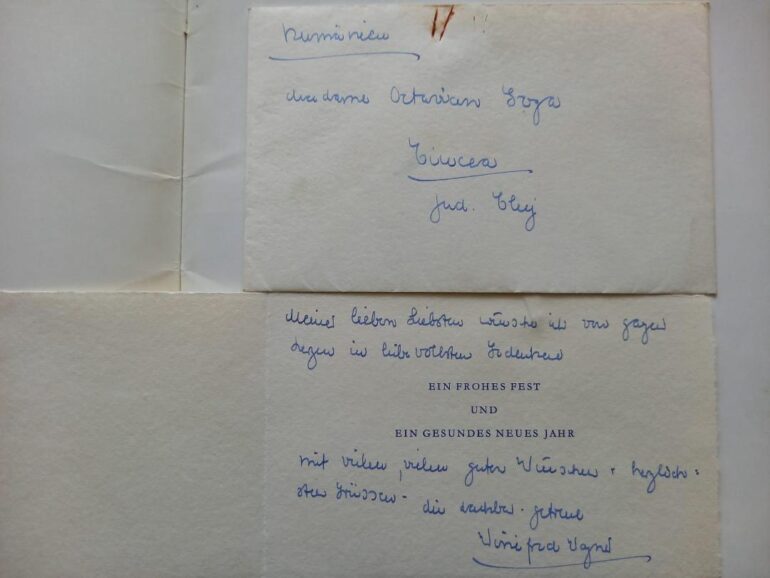 Rumänien
Madame Octavian Goga
Ciucea
jud. Cluj
Meiner lieben Liebsten wünsche ich von ganzem
Herzen in liebevollstem Gedenken
EIN FROHES FEST
UND
EIN GESUNDES NEUES JAHR
mit vielen, vielen guten Wünschen + herzlich-
sten Grüssen - die dankbar-getreue
Winifred Wagner